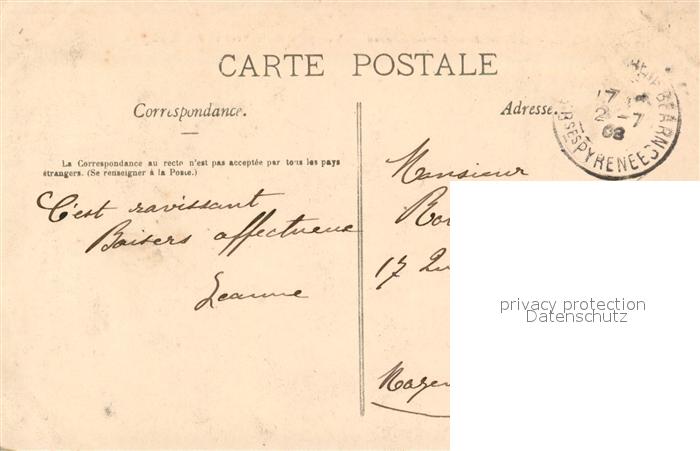 CARTE POSTALE
Correspondance.
Adresse
La Correspondance au recto n'est pas acceptée par tous les pays
étrangers. (Se renseigner à la Poste.)
C'est ravissant
Baisers affectueux
Jeanne
Monsieur
17
BEARN
17
2-7
08
BSES PYRENEES
privacy protection
Datenschutz